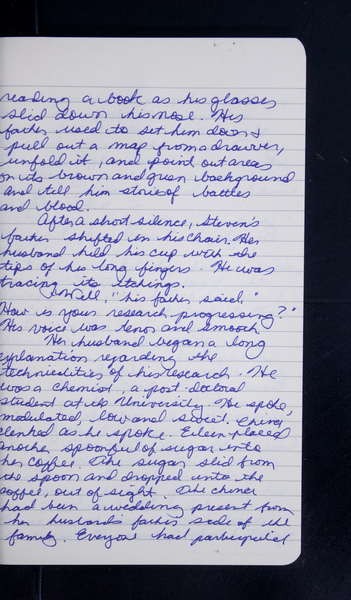 reading a book as his glasses
slid down his nose. His
father used to set him down &
pull out a map from a drawer,
unfold it, and point out areas
on its brown and green background
and tell him stories of battles
and blood.
After a short silence, Steven's
father shifted in his chair. Her
husband held his cup with the
tips of his long fingers. He was
tracing its etchings.
"Well," his father said, "
How is your research progressing?"
His voice was tenor and smooth.
Her husband began a long
explanation regarding the
technicalities of his research. He
was a chemist, a post-doctoral
student at the University. He spoke,
modulated, low and sweet. China
clenked as he spoke. Eileen placed
another spoonful of sugar into
her coffee. The sugar slid from
the spoon and dropped into the
coffee, out of sight. The china
had been a wedding present from
her husband's father's side of the
family. Everyone had participated